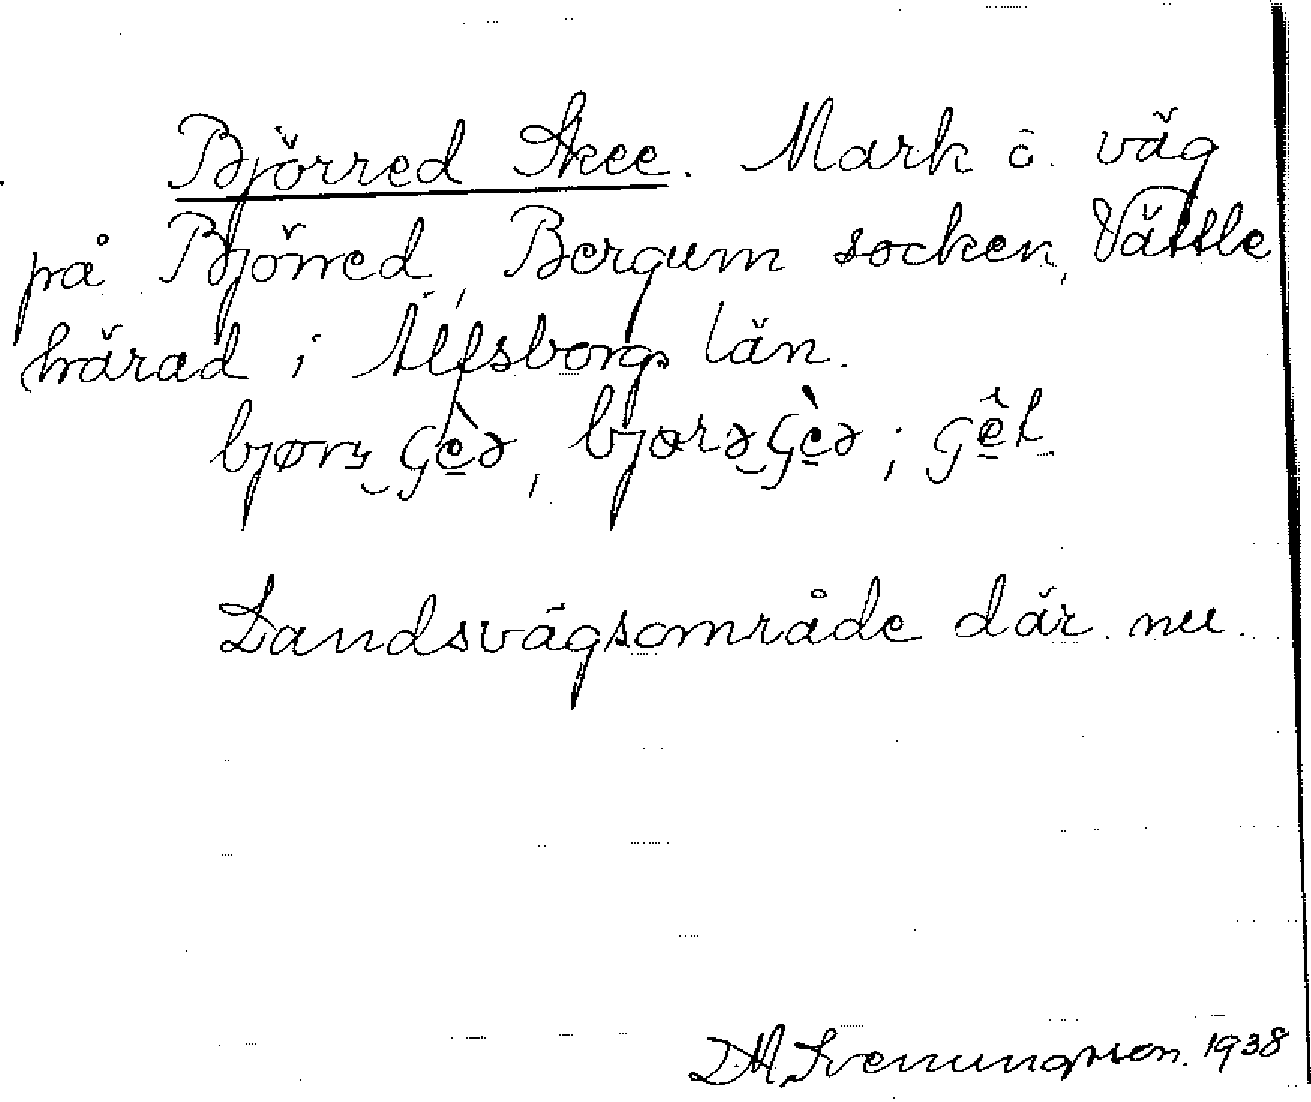 Björred Skee. Mark o. väg
på Björred, Bergum socken, Vättle
härad i Älfsborgs län.
Landsvägsområde där nu.
D.A. Svenungsson. 1938